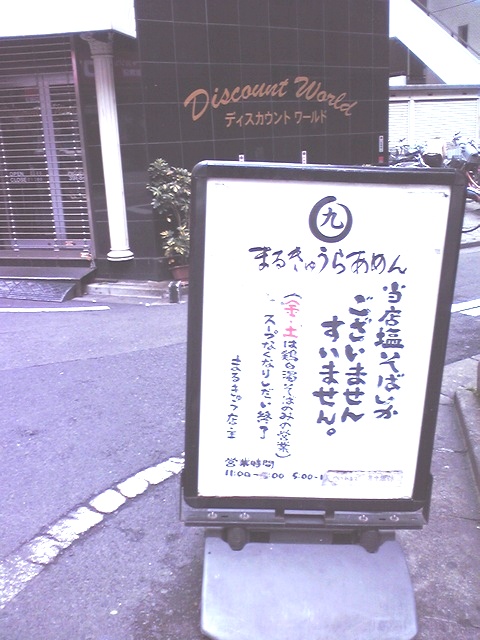 Discount World
ディスカウント ワールド
九
まるきゅうらあめん
当店塩そばしか
ございません
すいません。
(金・土は鶏白湯そばのみの営業)
スープなくなりしだい終了
店主
営業時間
11:00〜